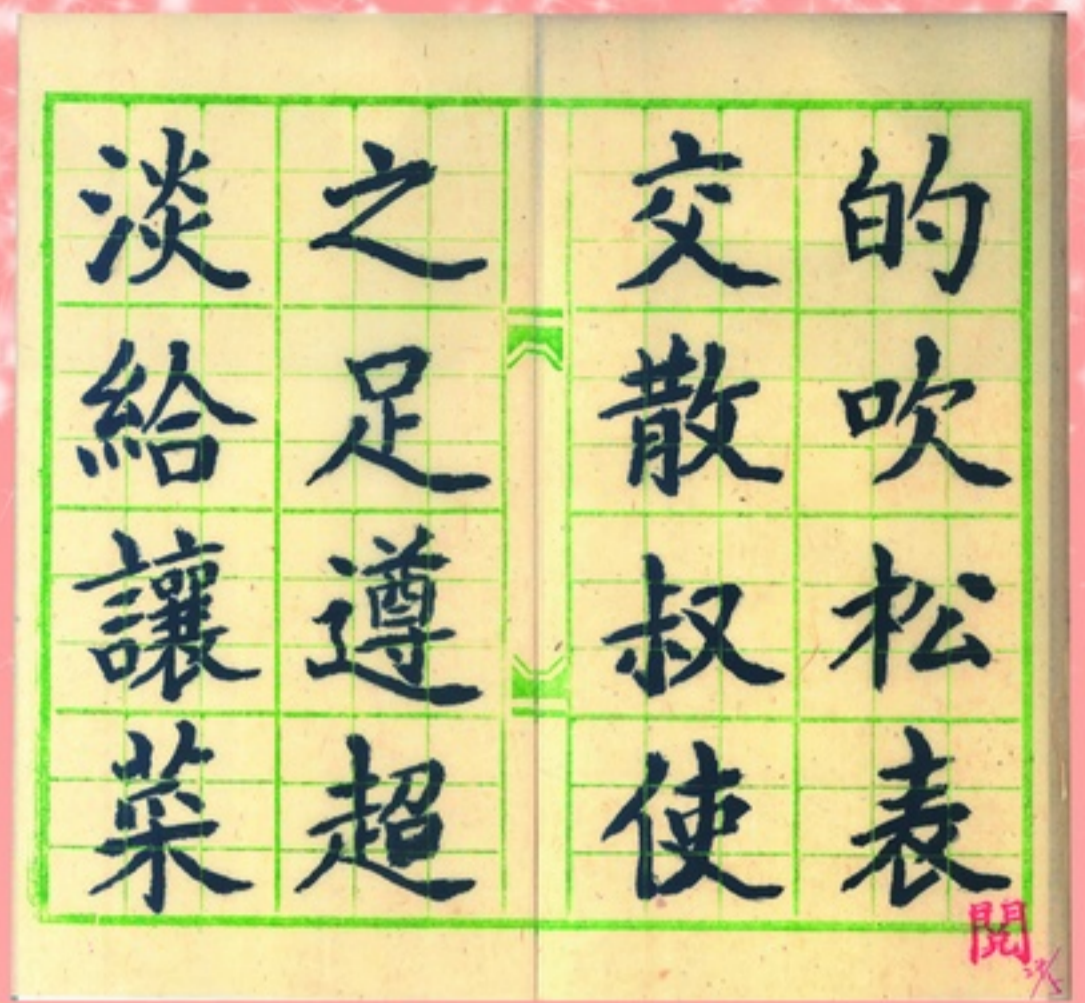 的吹松表
交散叔使
之足遵超
淡給讓菜
閱
23/5